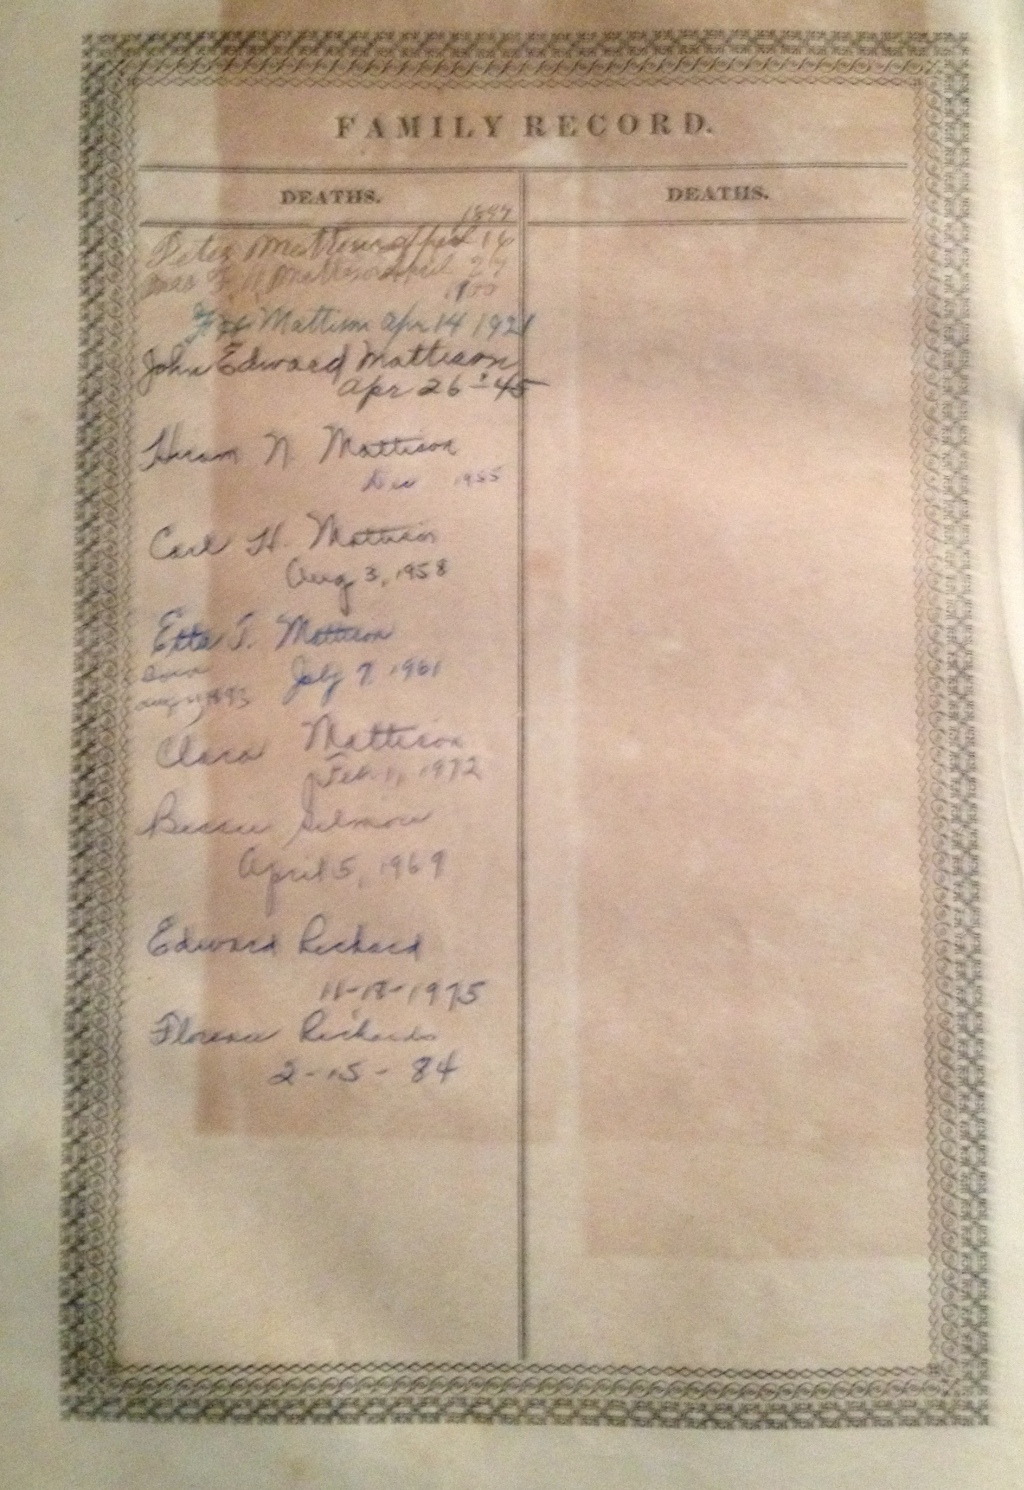 FAMILY RECORD.
DEATHS.
DEATHS.
1897
Peter Mattison April 14
Mrs F. H. Mattison April 27
1900
F H Mattison Apr 14 1921
John Edward Mattison
Apr 26 - 45
Hiram N. Mattison
Dec 1955
Carl H. Mattison
Aug 3, 1958
Etta T. Mattison
Born
July 7, 1961
Aug 1893
Clara Mattison
Feb. 1, 1972
Bessie Gilmore
April 5, 1969
Edward Richard
11-18-1975
Florence Richards
2-15-84